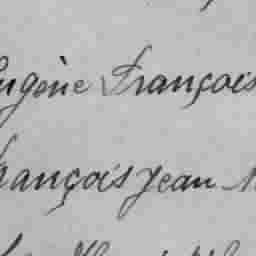 Eugène François
François Jean